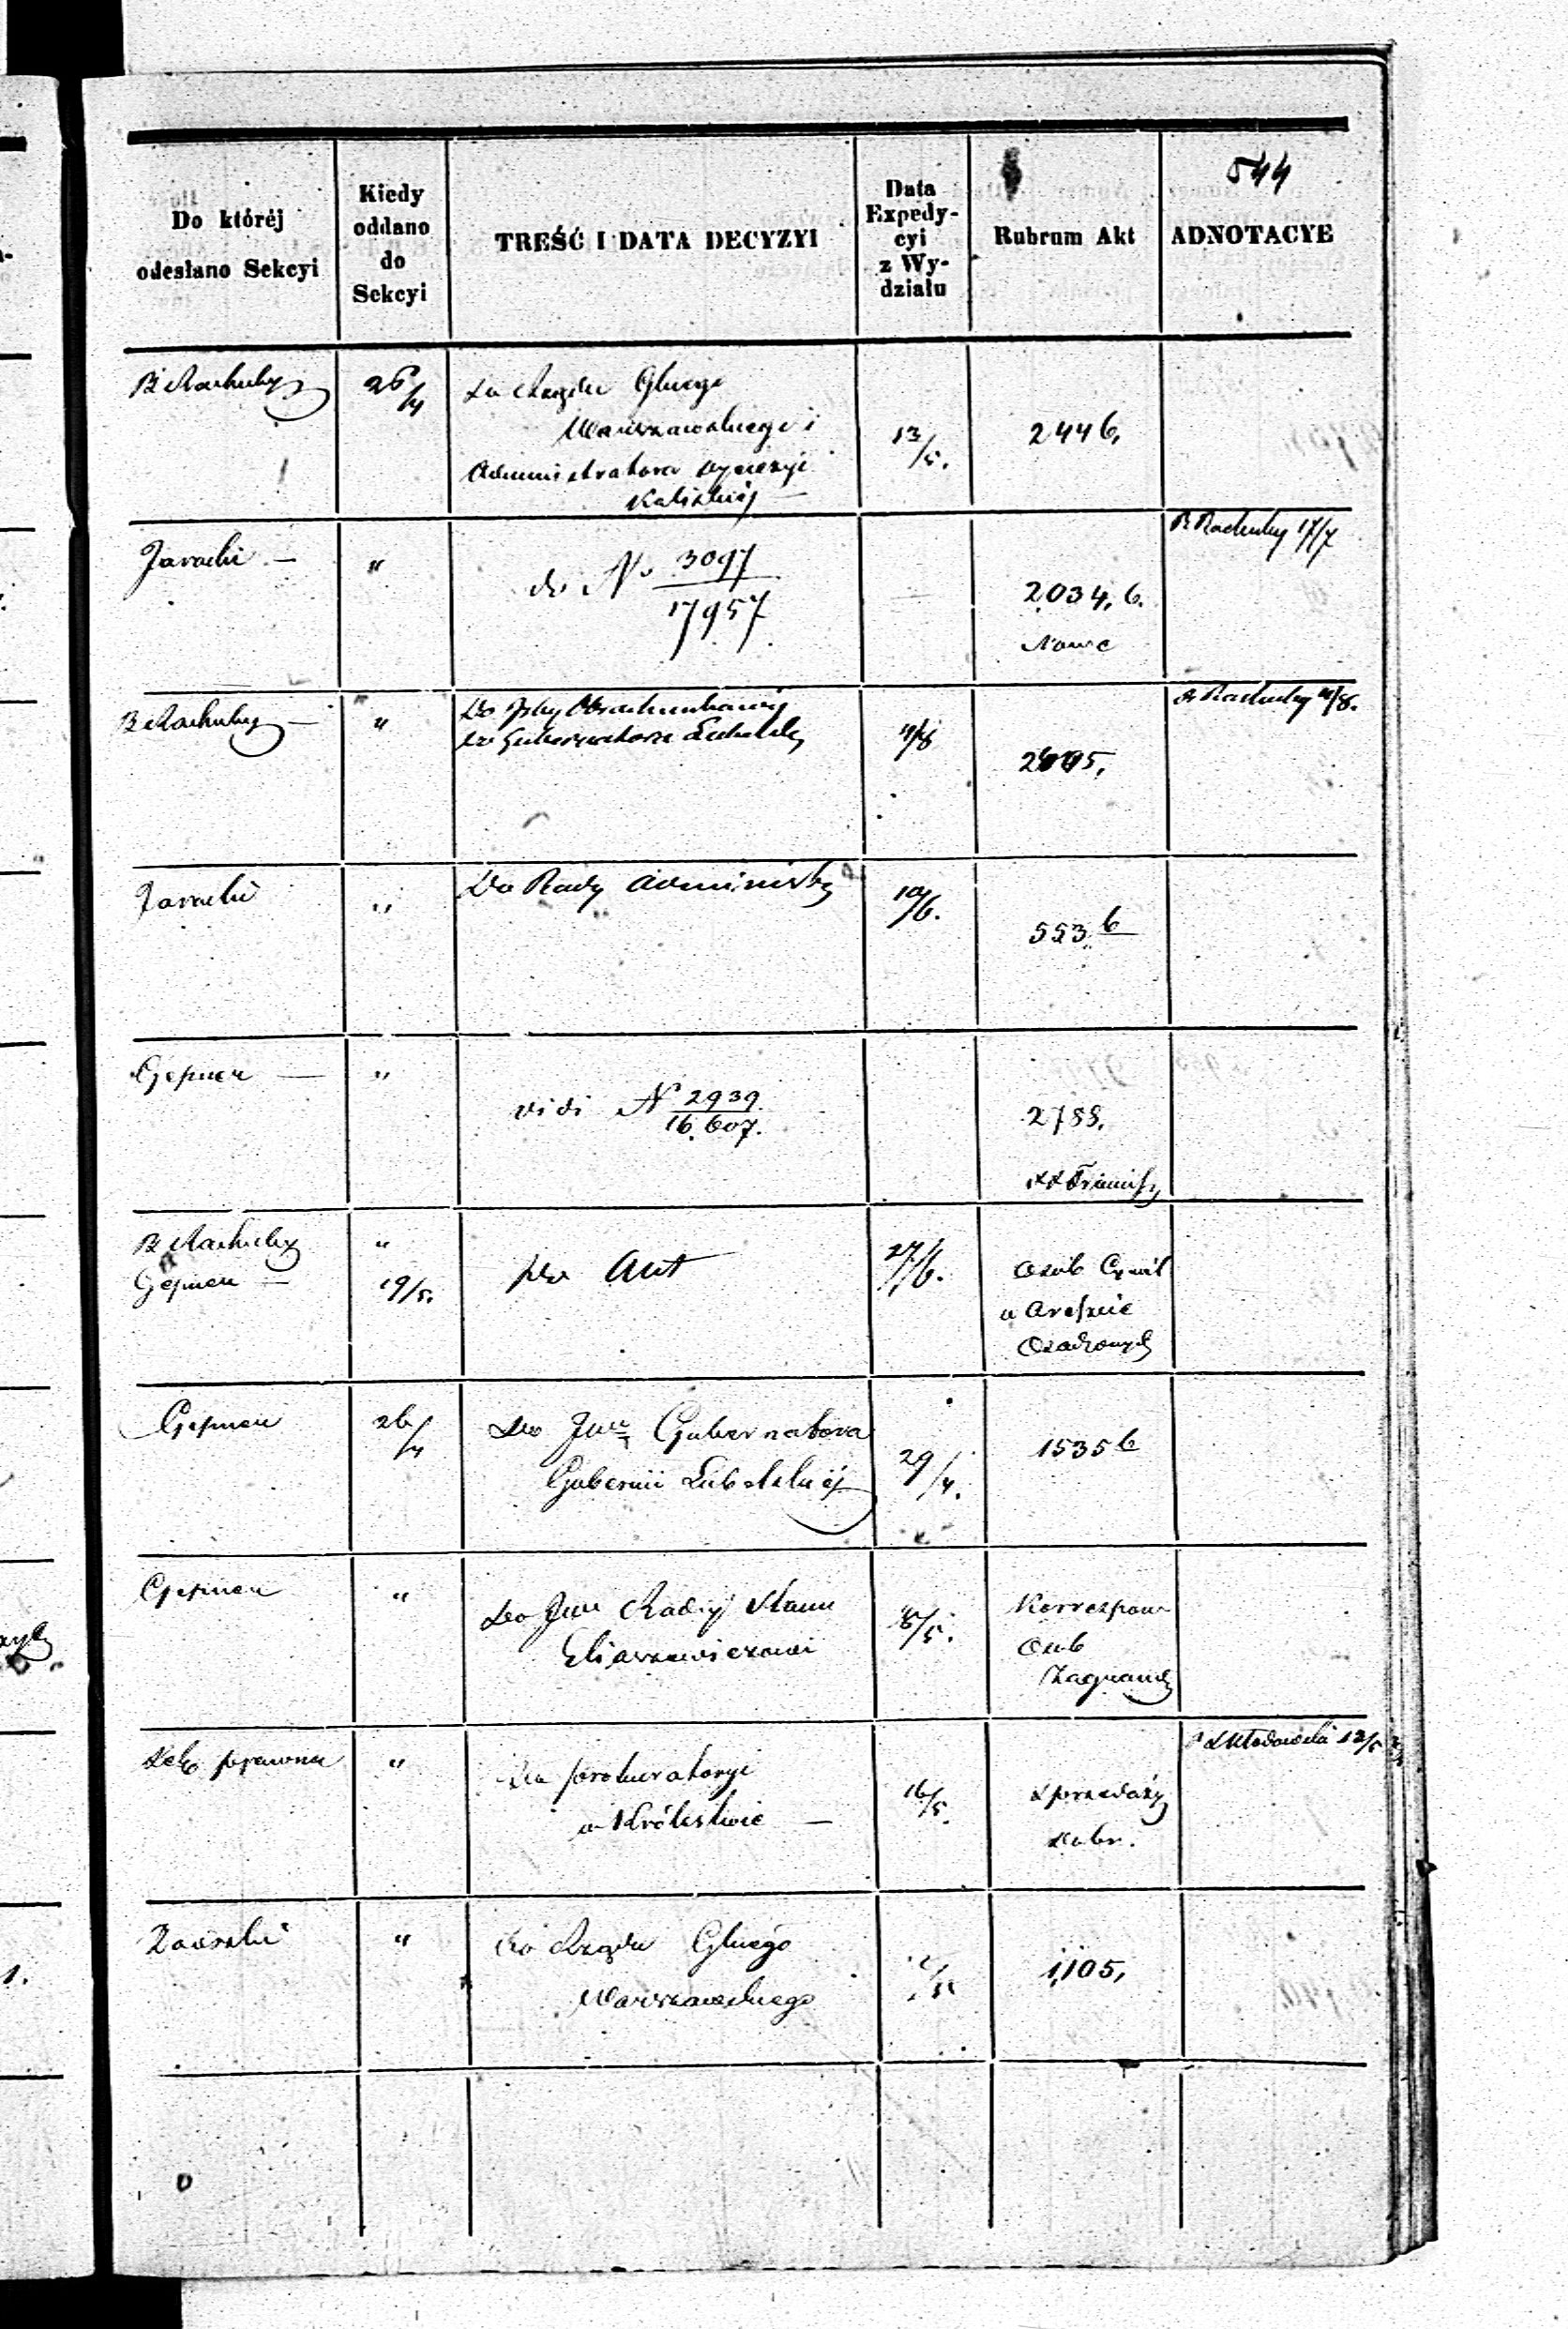 544
Do któréj odesłano Sekcyi
Kiedy oddano do Sekcyi
TREŚĆ I DATA DECYZYI
Data Expedy-cyi z Wy-działu
Rubrum Akt
ADNOTACYE
B Rachuby
26/4
Do Rządu Glnego
Warszawskiego i
Administratora
Kaliskiej
13/5.
2446,
Jaracki —
"
do No 3097
17957
2034, 6.
Nowe
B Rachuby 17/7
B Rachuby —
"
Do Izby Obrachunkowej
Do Gubernatora Lubelsk
11/8
B Rachuby 11/8.
Jaracki
"
Do Rady Administr
10/6.
553 6
Gepner —
"
vidi N 2939
16.607.
2788,
B Rachuby
"
Gepner —
19/5.
ad Act
27/6.
Osób Cywil
w Areszcie
Osadzonych
Gepner
26/4
Do JW Gubernatora
Gubernii Lubelskiéj
29/4.
1535 6
Gepner
"
Do JW Radcy Stanu
Eliaszewiczowi
Korrespon
Osób
Zagranic
Sek prawna
"
Do prokuratoryi
w Królestwie —
16/5.
Sprzedaży
Dobr.
12/5
"
Do Rządu Glnego
Warszawskiego
1,105,